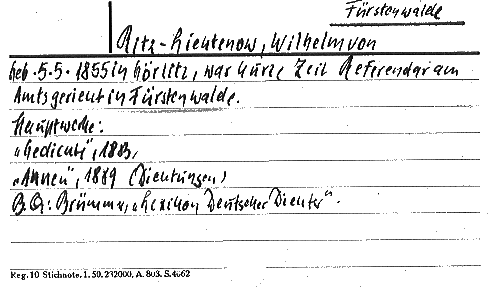 Fürstenwalde
Ritz-Lichtenow, Wilhelm von
geb. 5.5.1855 in Görlitz, war kurze Zeit Referendar am
Amtsgericht in Fürstenwalde.
Hauptwerke:
„Gedichte", 18
„Ahnen", 1889 (Dichtungen)
B.Q.: Brümmer, „Lexikon Deutscher Dichter".
Reg. 10 Stichnote. 1. 50. 232000, A. 803. S. 4662